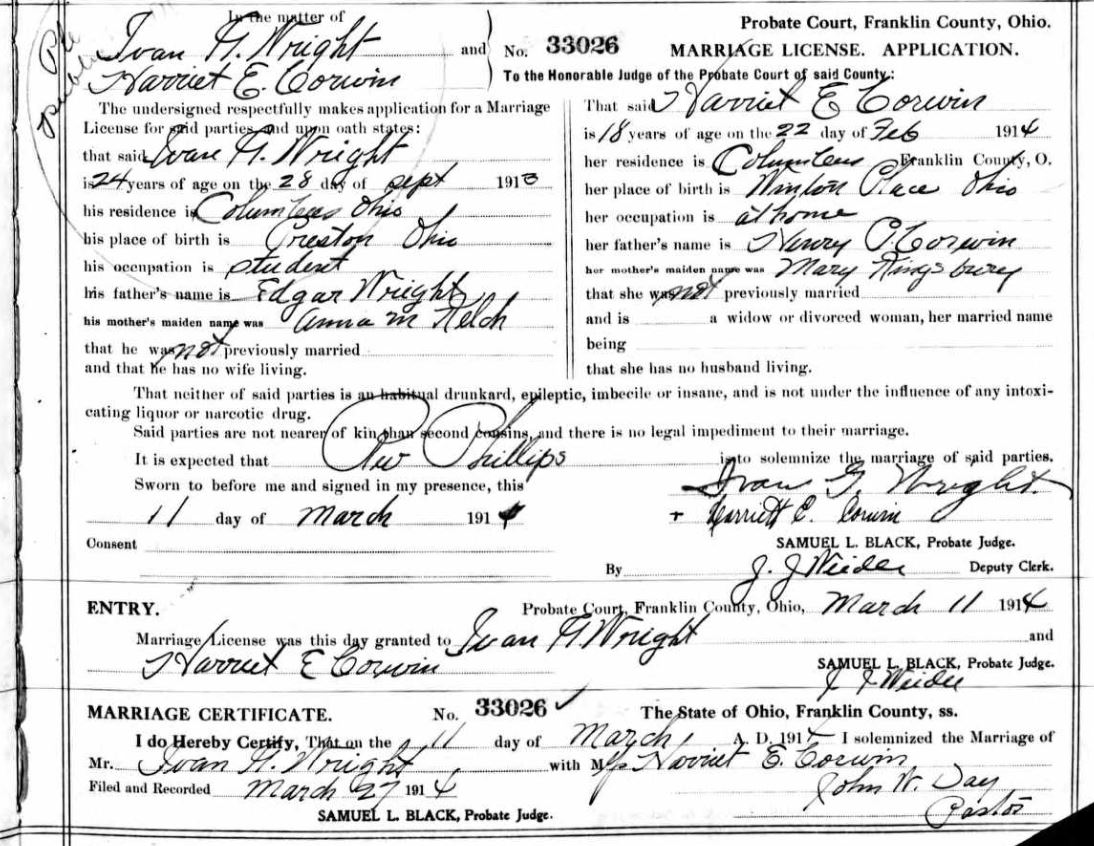 In the matter of
Ivan H. Wright and
Harriet E. Corwin
The undersigned respectfully makes application for a Marriage
License for said parties and upon oath states:
that said Ivan H. Wright
is 24 years of age on the 28 day of Sept 1913
his residence is Columbus Ohio
his place of birth is Preston Ohio
his occupation is student
his father's name is Edgar Wright
his mother's maiden name was Anna M
that he was not previously married
and that he has no wife living.
No. 33026
Probate Court, Franklin County, Ohio.
MARRIAGE LICENSE. APPLICATION.
To the Honorable Judge of the Probate Court of said County:
That said Harriet E Corwin
is 18 years of age on the 22 day of Feb 1914
her residence is Columbus Franklin County, O.
her place of birth is Winton Place Ohio
her occupation is at home
her father's name is Henry P. Corwin
her mother's maiden name was Mary Kingsbury
that she was not previously married
and is a widow or divorced woman, her married name
being
that she has no husband living.
That neither of said parties is an habitual drunkard, epileptic, imbecile or insane, and is not under the influence of any intoxi-
cating liquor or narcotic drug.
Said parties are not nearer of kin than second cousins, and there is no legal impediment to their marriage.
It is expected that Rev Phillips is to solemnize the marriage of said parties.
Sworn to before me and signed in my presence, this
11 day of March 1914
Ivan G. Wright.
+ Harriett E. Corwin
Consent
SAMUEL L. BLACK, Probate Judge.
By J. J. Weider Deputy Clerk.
ENTRY.
Probate Court, Franklin County, Ohio, March 11 1914
Marriage License was this day granted to Ivan H Wright and
Harriet E Corwin
SAMUEL L. BLACK, Probate Judge.
J J Weider
MARRIAGE CERTIFICATE. No. 33026 ✓ The State of Ohio, Franklin County, ss.
I do Hereby Certify, That on the 11 day of March, A. D. 1914 I solemnized the Marriage of
Mr. Ivan H. Wright with Harriet E. Corwin
Filed and Recorded March 27 1914
John W. Day
Pastor
SAMUEL L. BLACK, Probate Judge.